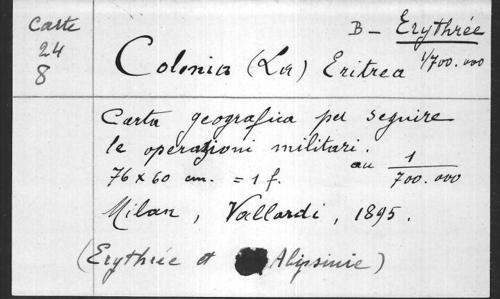 Carte
24
8
B - Erythrée
1/700.000
Colonia (La) Eritrea
Carta geografica per seguire
le operazioni militari.
76 x 60 cm. = 1 f. au 1/700.000
Milan, Vallardi, 1895.
(Erythrée et Abyssinie)